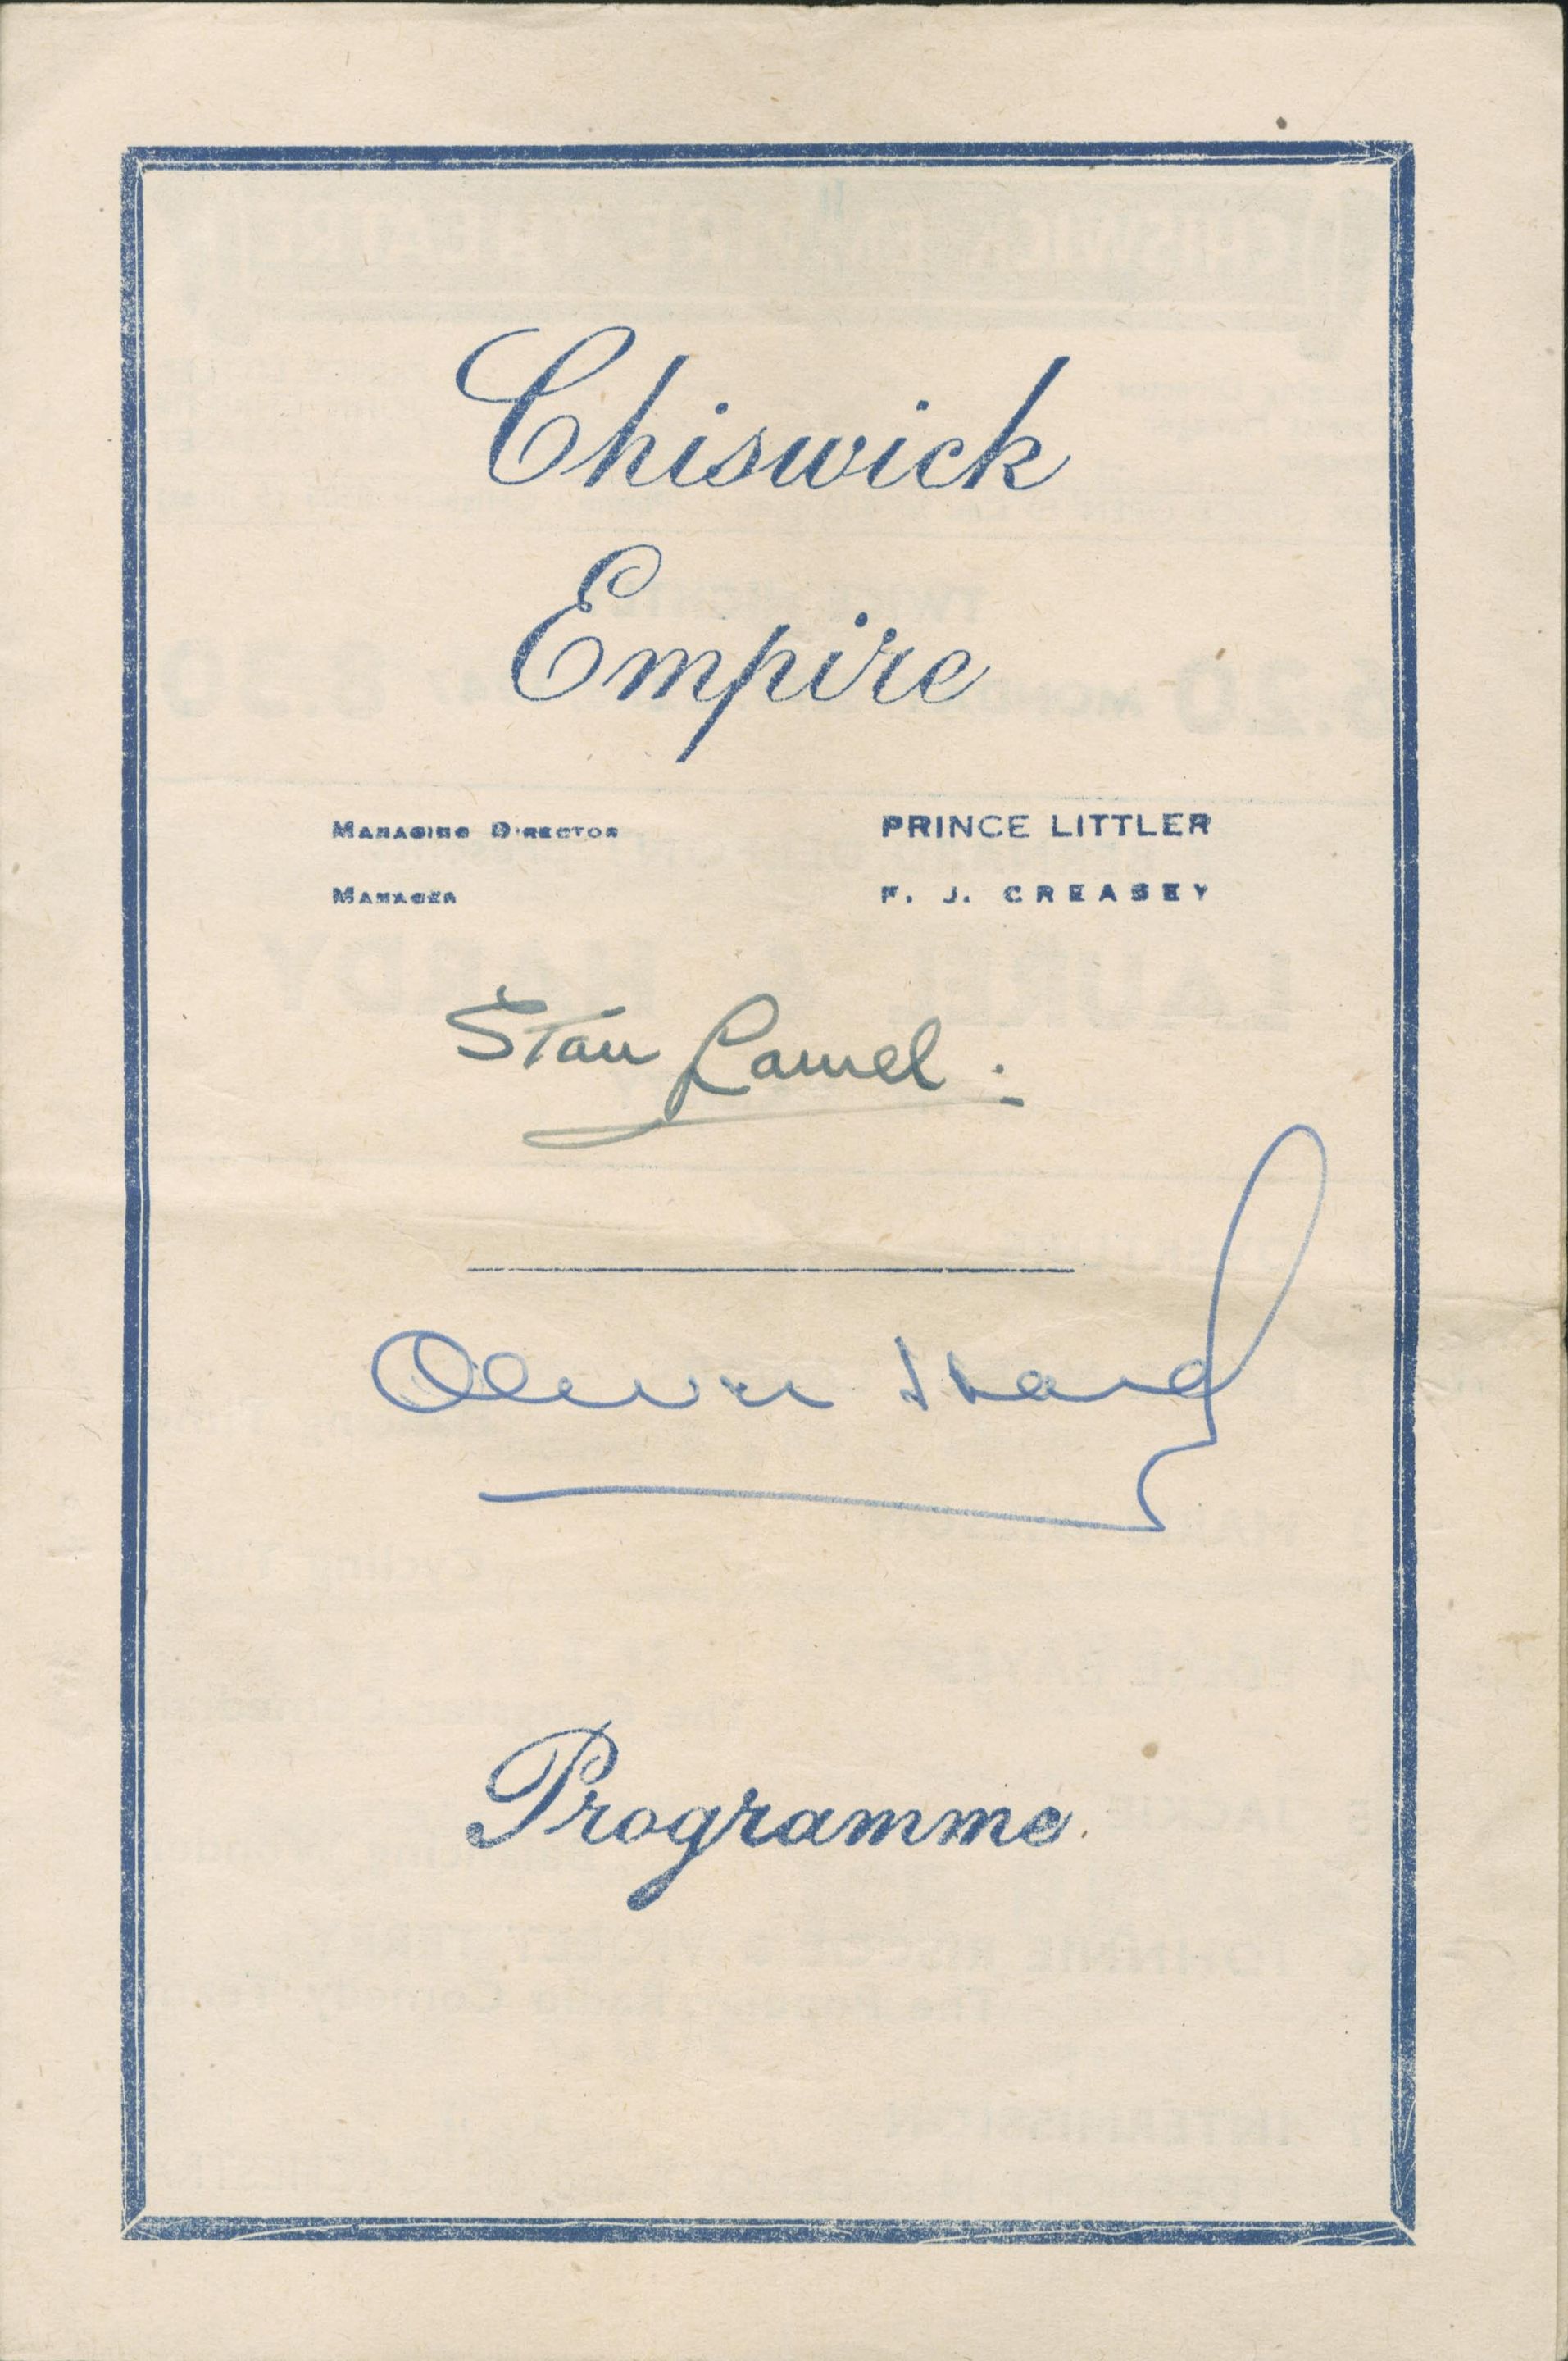 Chiswick
Empire
MANAGING DIRECTOR PRINCE LITTLER
MANAGER F. J. CREASEY
Stan Laurel.
Oliver Hardy
Programme